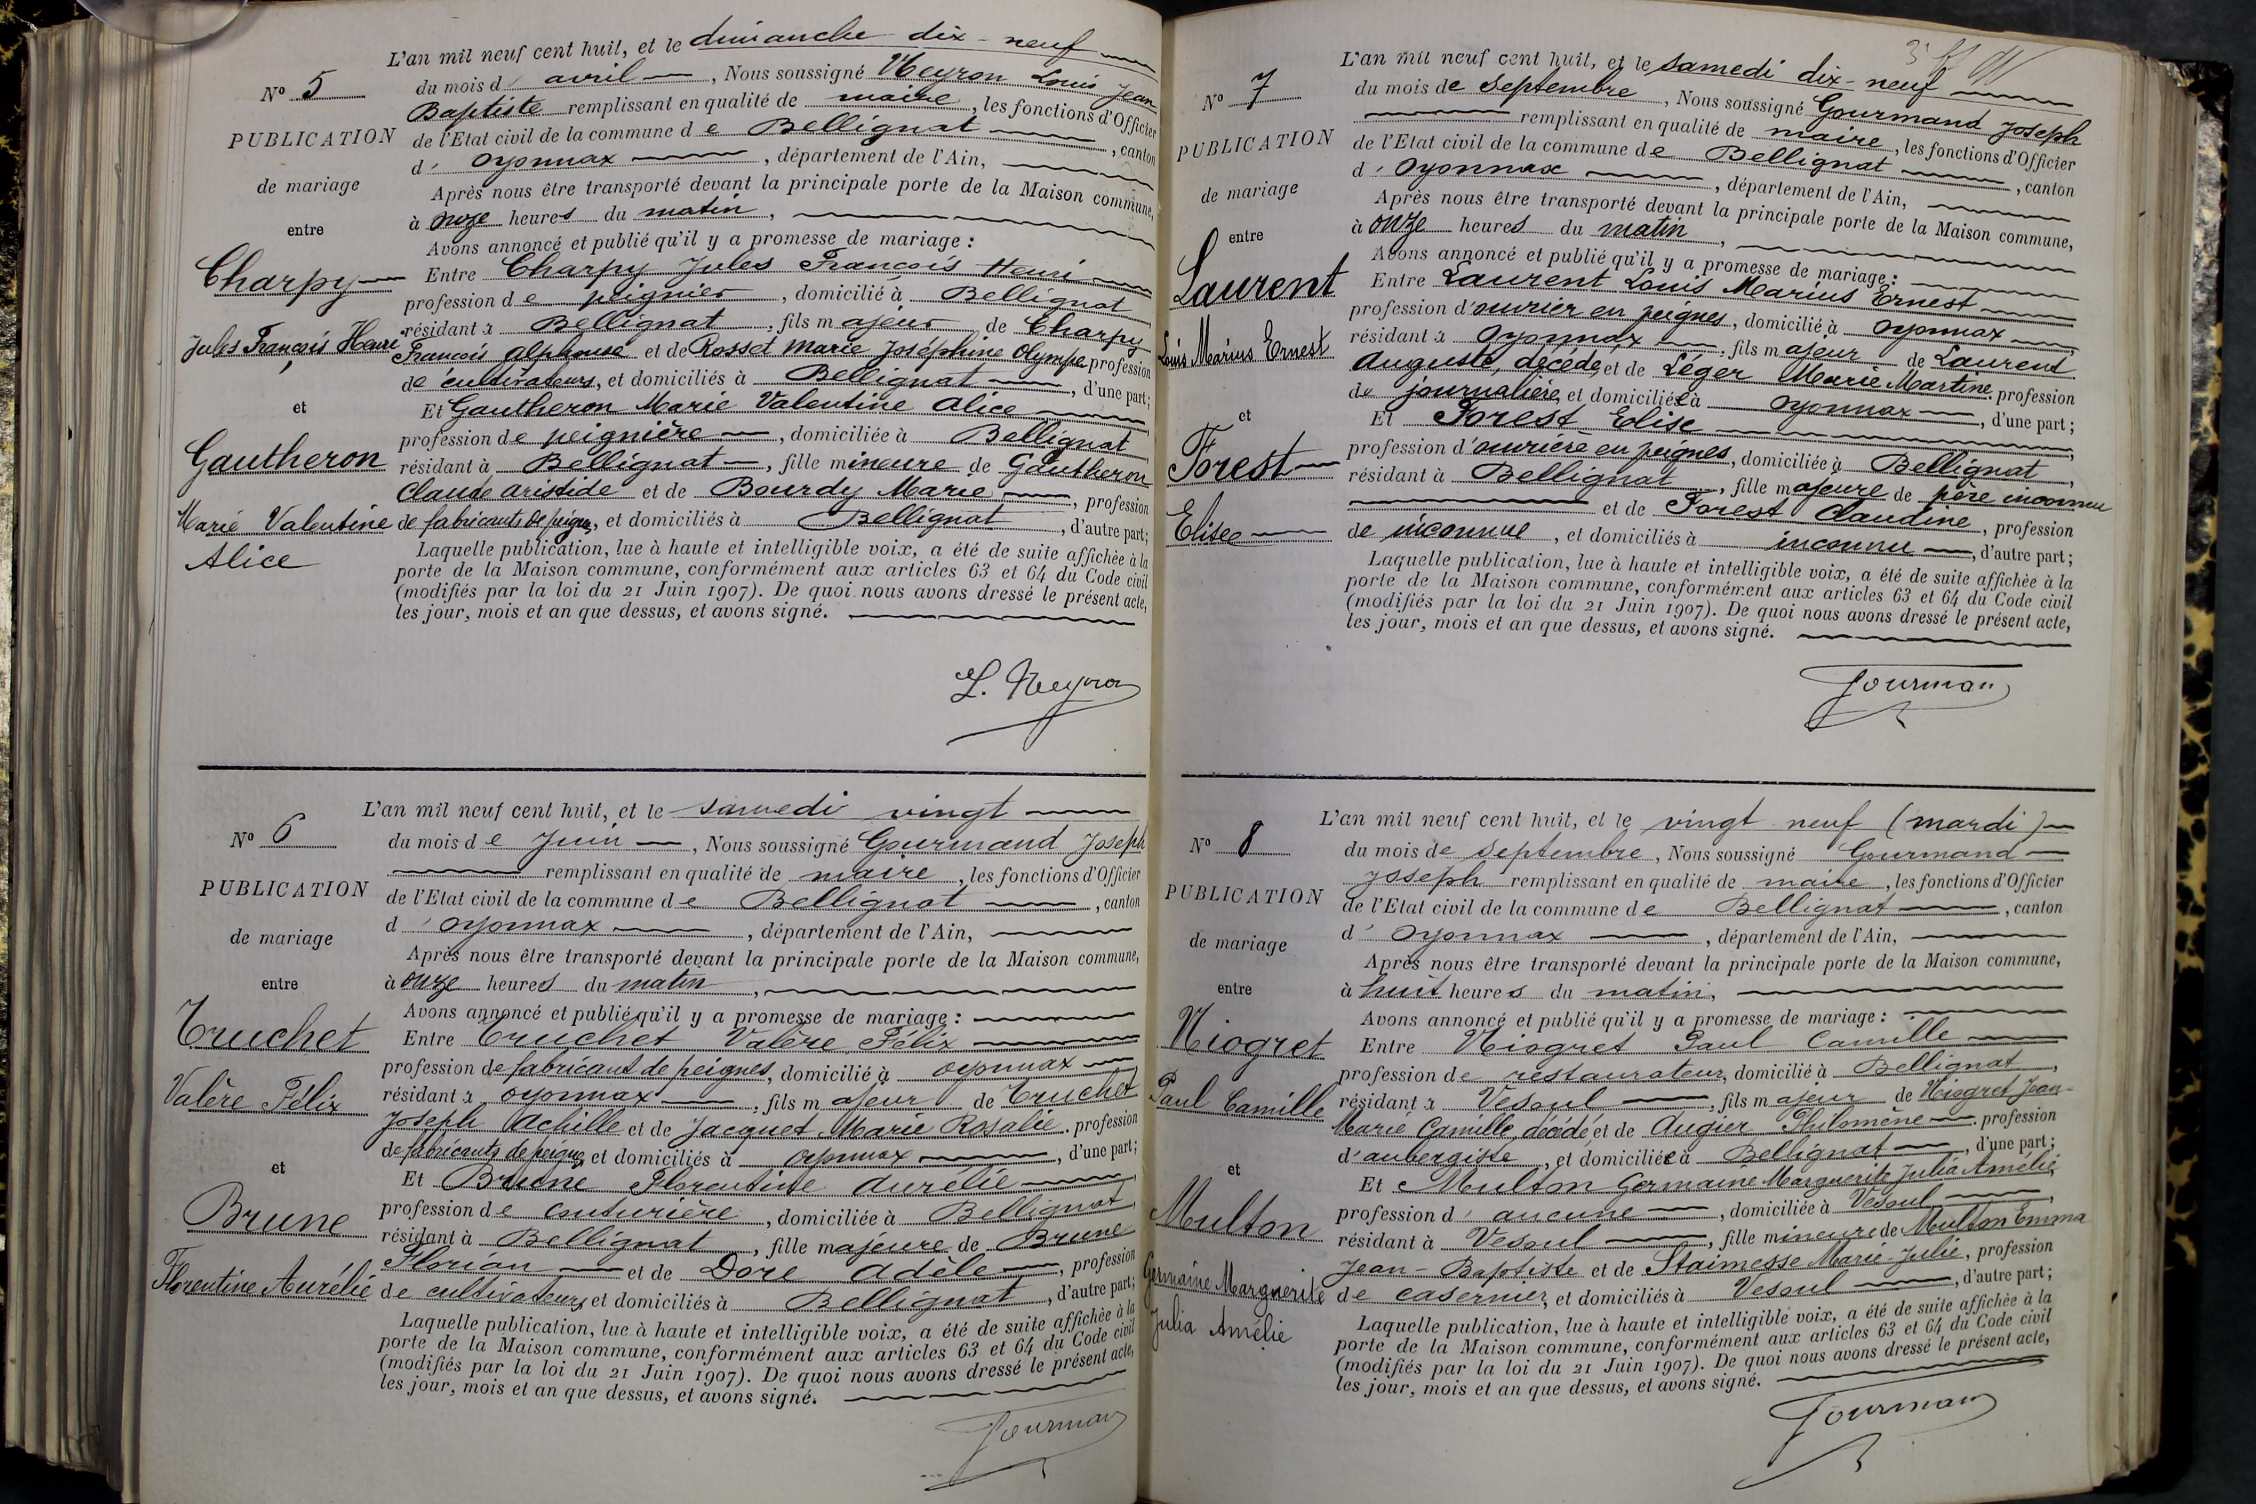 L'an mil neuf cent huit, et le dimanche dix-neuf
N° 5
du mois d' avril, Nous soussigné Neyron Louis Jean
Baptiste remplissant en qualité de maire, les fonctions d'Officier
PUBLICATION
de l'Etat civil de la commune de Bellignat, canton
d' Oyonnax, département de l'Ain,
de mariage
Après nous être transporté devant la principale porte de la Maison commune,
à onze heures du matin,
entre
Avons annoncé et publié qu'il y a promesse de mariage :
Charpy
Entre Charpy Jules François Henri
profession de peignier, domicilié à Bellignat
Jules François Henri
résidant à Bellignat, fils majeur de Charpy
François Alphonse et de Rosset Marie Joséphine Olympe profession
de cultivateurs, et domiciliés à Bellignat, d'une part;
et
Et Gautheron Marie Valentine Alice
profession de peignière, domiciliée à Bellignat
Gautheron
résidant à Bellignat, fille mineure de Gautheron
Claude Aristide et de Bourdy Marie, profession
Marie Valentine
de fabricants de peignes, et domiciliés à Bellignat, d'autre part;
Alice
Laquelle publication, lue à haute et intelligible voix, a été de suite affichée à la
porte de la Maison commune, conformément aux articles 63 et 64 du Code civil
(modifiés par la loi du 21 Juin 1907). De quoi nous avons dressé le présent acte,
les jour, mois et an que dessus, et avons signé.
L. Neyron
L'an mil neuf cent huit, et le samedi vingt
N° 6
du mois de Juin, Nous soussigné Gourmand Joseph
remplissant en qualité de maire, les fonctions d'Officier
PUBLICATION
de l'Etat civil de la commune de Bellignat, canton
d' Oyonnax, département de l'Ain,
de mariage
Après nous être transporté devant la principale porte de la Maison commune,
entre
à onze heures du matin,
Avons annoncé et publié qu'il y a promesse de mariage :
Truchet
Entre Truchet Valère Félix
profession de fabricant de peignes, domicilié à Oyonnax
Valère Félix
résidant à Oyonnax, fils majeur de Truchet
Joseph Achille et de Jacquet Marie Rosalie, profession
de fabricants de peignes, et domiciliés à Oyonnax, d'une part;
et
Et Brune Florentine Aurélie
profession de couturière, domiciliée à Bellignat
Brune
résidant à Bellignat, fille majeure de Brune
Florian et de Dore Adèle, profession
Florentine Aurélie
de cultivateurs, et domiciliés à Bellignat, d'autre part;
Laquelle publication, lue à haute et intelligible voix, a été de suite affichée à la
porte de la Maison commune, conformément aux articles 63 et 64 du Code civil
(modifiés par la loi du 21 Juin 1907). De quoi nous avons dressé le présent acte,
les jour, mois et an que dessus, et avons signé.
Gourmand
L'an mil neuf cent huit, et le samedi dix-neuf
N° 7
du mois de Septembre, Nous soussigné Gourmand Joseph
remplissant en qualité de maire, les fonctions d'Officier
PUBLICATION
de l'Etat civil de la commune de Bellignat, canton
d' Oyonnax, département de l'Ain,
de mariage
Après nous être transporté devant la principale porte de la Maison commune,
entre
à onze heures du matin,
Avons annoncé et publié qu'il y a promesse de mariage :
Laurent
Entre Laurent Louis Marius Ernest
profession d'ouvrier en peignes, domicilié à Oyonnax
Louis Marius Ernest
résidant à Oyonnax, fils majeur de Laurent
Auguste, décédé, et de Léger Marie Martine profession
de journalière, et domiciliée à Oyonnax, d'une part;
et
Et Forest Elise
profession d'ouvrière en peignes, domiciliée à Bellignat,
Forest
résidant à Bellignat, fille majeure de père inconnu
et de Forest Claudine, profession
Elise
de inconnue, et domiciliés à inconnu, d'autre part;
Laquelle publication, lue à haute et intelligible voix, a été de suite affichée à la
porte de la Maison commune, conformément aux articles 63 et 64 du Code civil
(modifiés par la loi du 21 Juin 1907). De quoi nous avons dressé le présent acte,
les jour, mois et an que dessus, et avons signé.
Gourmand
L'an mil neuf cent huit, et le vingt neuf (mardi)
N° 8
du mois de Septembre, Nous soussigné Gourmand
Joseph remplissant en qualité de maire, les fonctions d'Officier
PUBLICATION
de l'Etat civil de la commune de Bellignat, canton
d' Oyonnax, département de l'Ain,
de mariage
Après nous être transporté devant la principale porte de la Maison commune,
entre
à huit heures du matin,
Avons annoncé et publié qu'il y a promesse de mariage :
Niogret
Entre Niogret Paul Camille
profession de restaurateur, domicilié à Bellignat,
Paul Camille
résidant à Vesoul, fils majeur de Niogret Jean-
Marie Camille, décédé, et de Augier Philomène, profession
d'aubergiste, et domiciliée à Bellignat, d'une part;
et
Et Multon Germaine Marguerite Julia Amélie
profession d' aucune, domiciliée à Vesoul,
Multon
résidant à Vesoul, fille mineure de Multon Emma
Jean-Baptiste et de Staimesse Marie-Julie, profession
Germaine Marguerite
de casernier, et domiciliés à Vesoul, d'autre part;
Julia Amélie
Laquelle publication, lue à haute et intelligible voix, a été de suite affichée à la
porte de la Maison commune, conformément aux articles 63 et 64 du Code civil
(modifiés par la loi du 21 Juin 1907). De quoi nous avons dressé le présent acte,
les jour, mois et an que dessus, et avons signé.
Gourmand